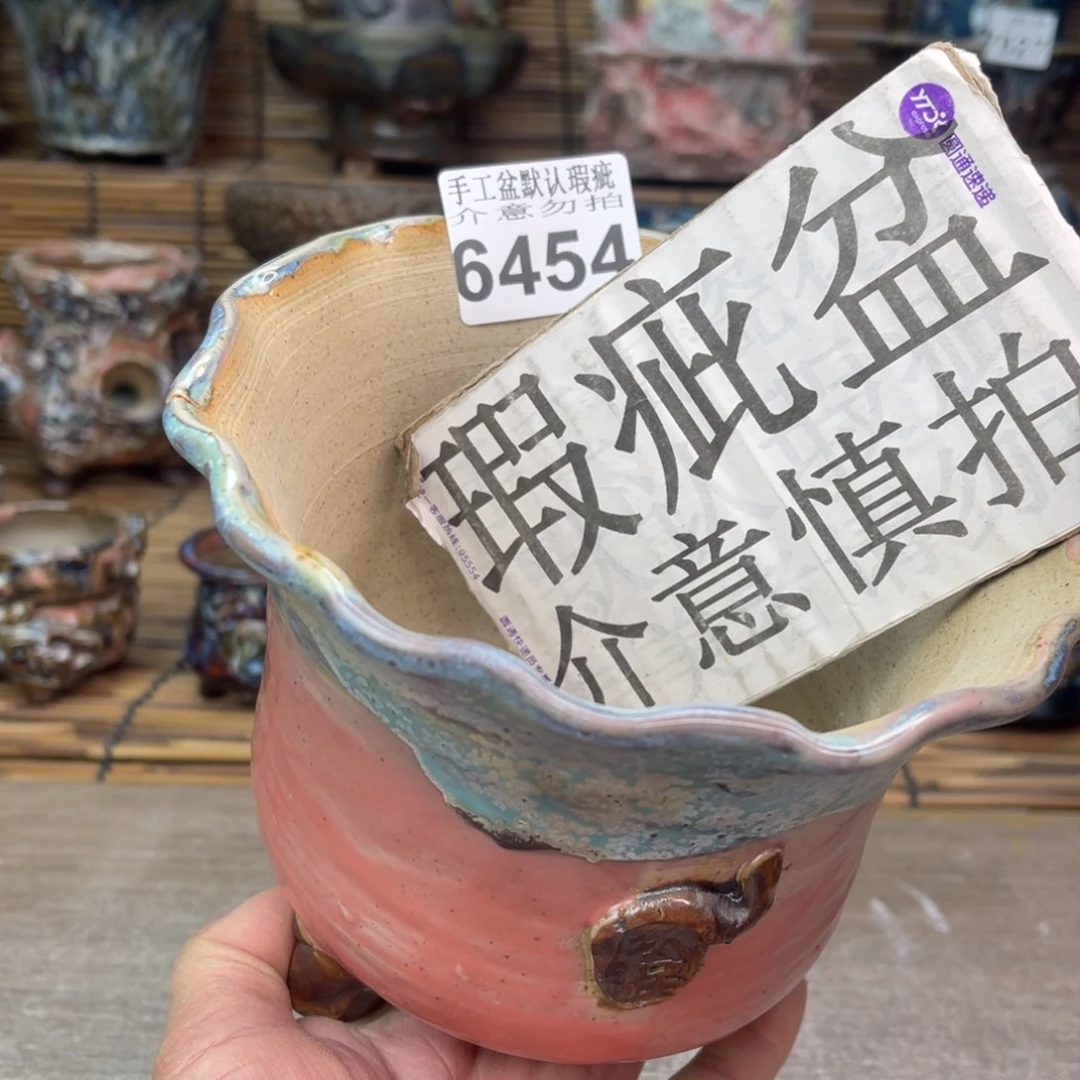 手工盆默认瑕疵
介意勿拍
6454
YTO
express
圆通速递
瑕疵盆
介意慎拍
客服热线:95554